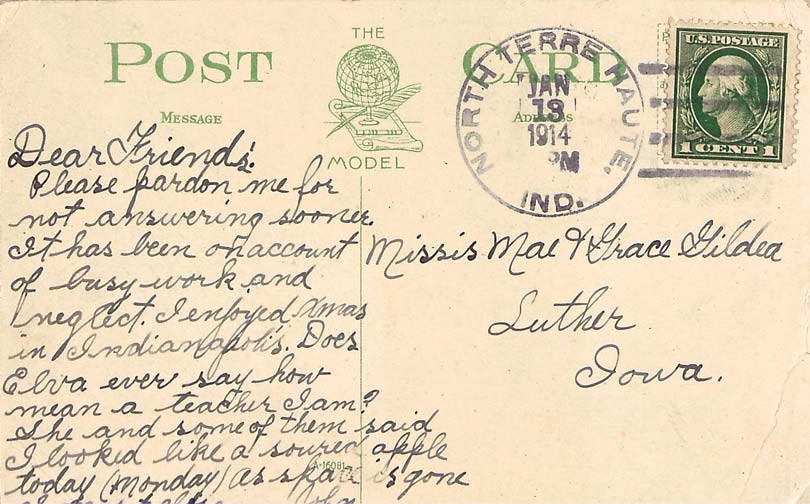 THE
POST CARD
MODEL
MESSAGE
NORTH TERRE HAUTE,
JAN
13
1914
PM
IND.
U.S. POSTAGE
1 CENT 1
Dear Friends:
Please pardon me for
not answering sooner.
It has been on account
of busy work and
neglect. I enjoyed Xmas
in Indianapolis. Does
Elva ever say how
mean a teacher I am?
She and some of them said
I looked like a soured apple
today (Monday) As space is gone
A-16081
Missis Mae & Grace Gildea
Luther
Iowa.